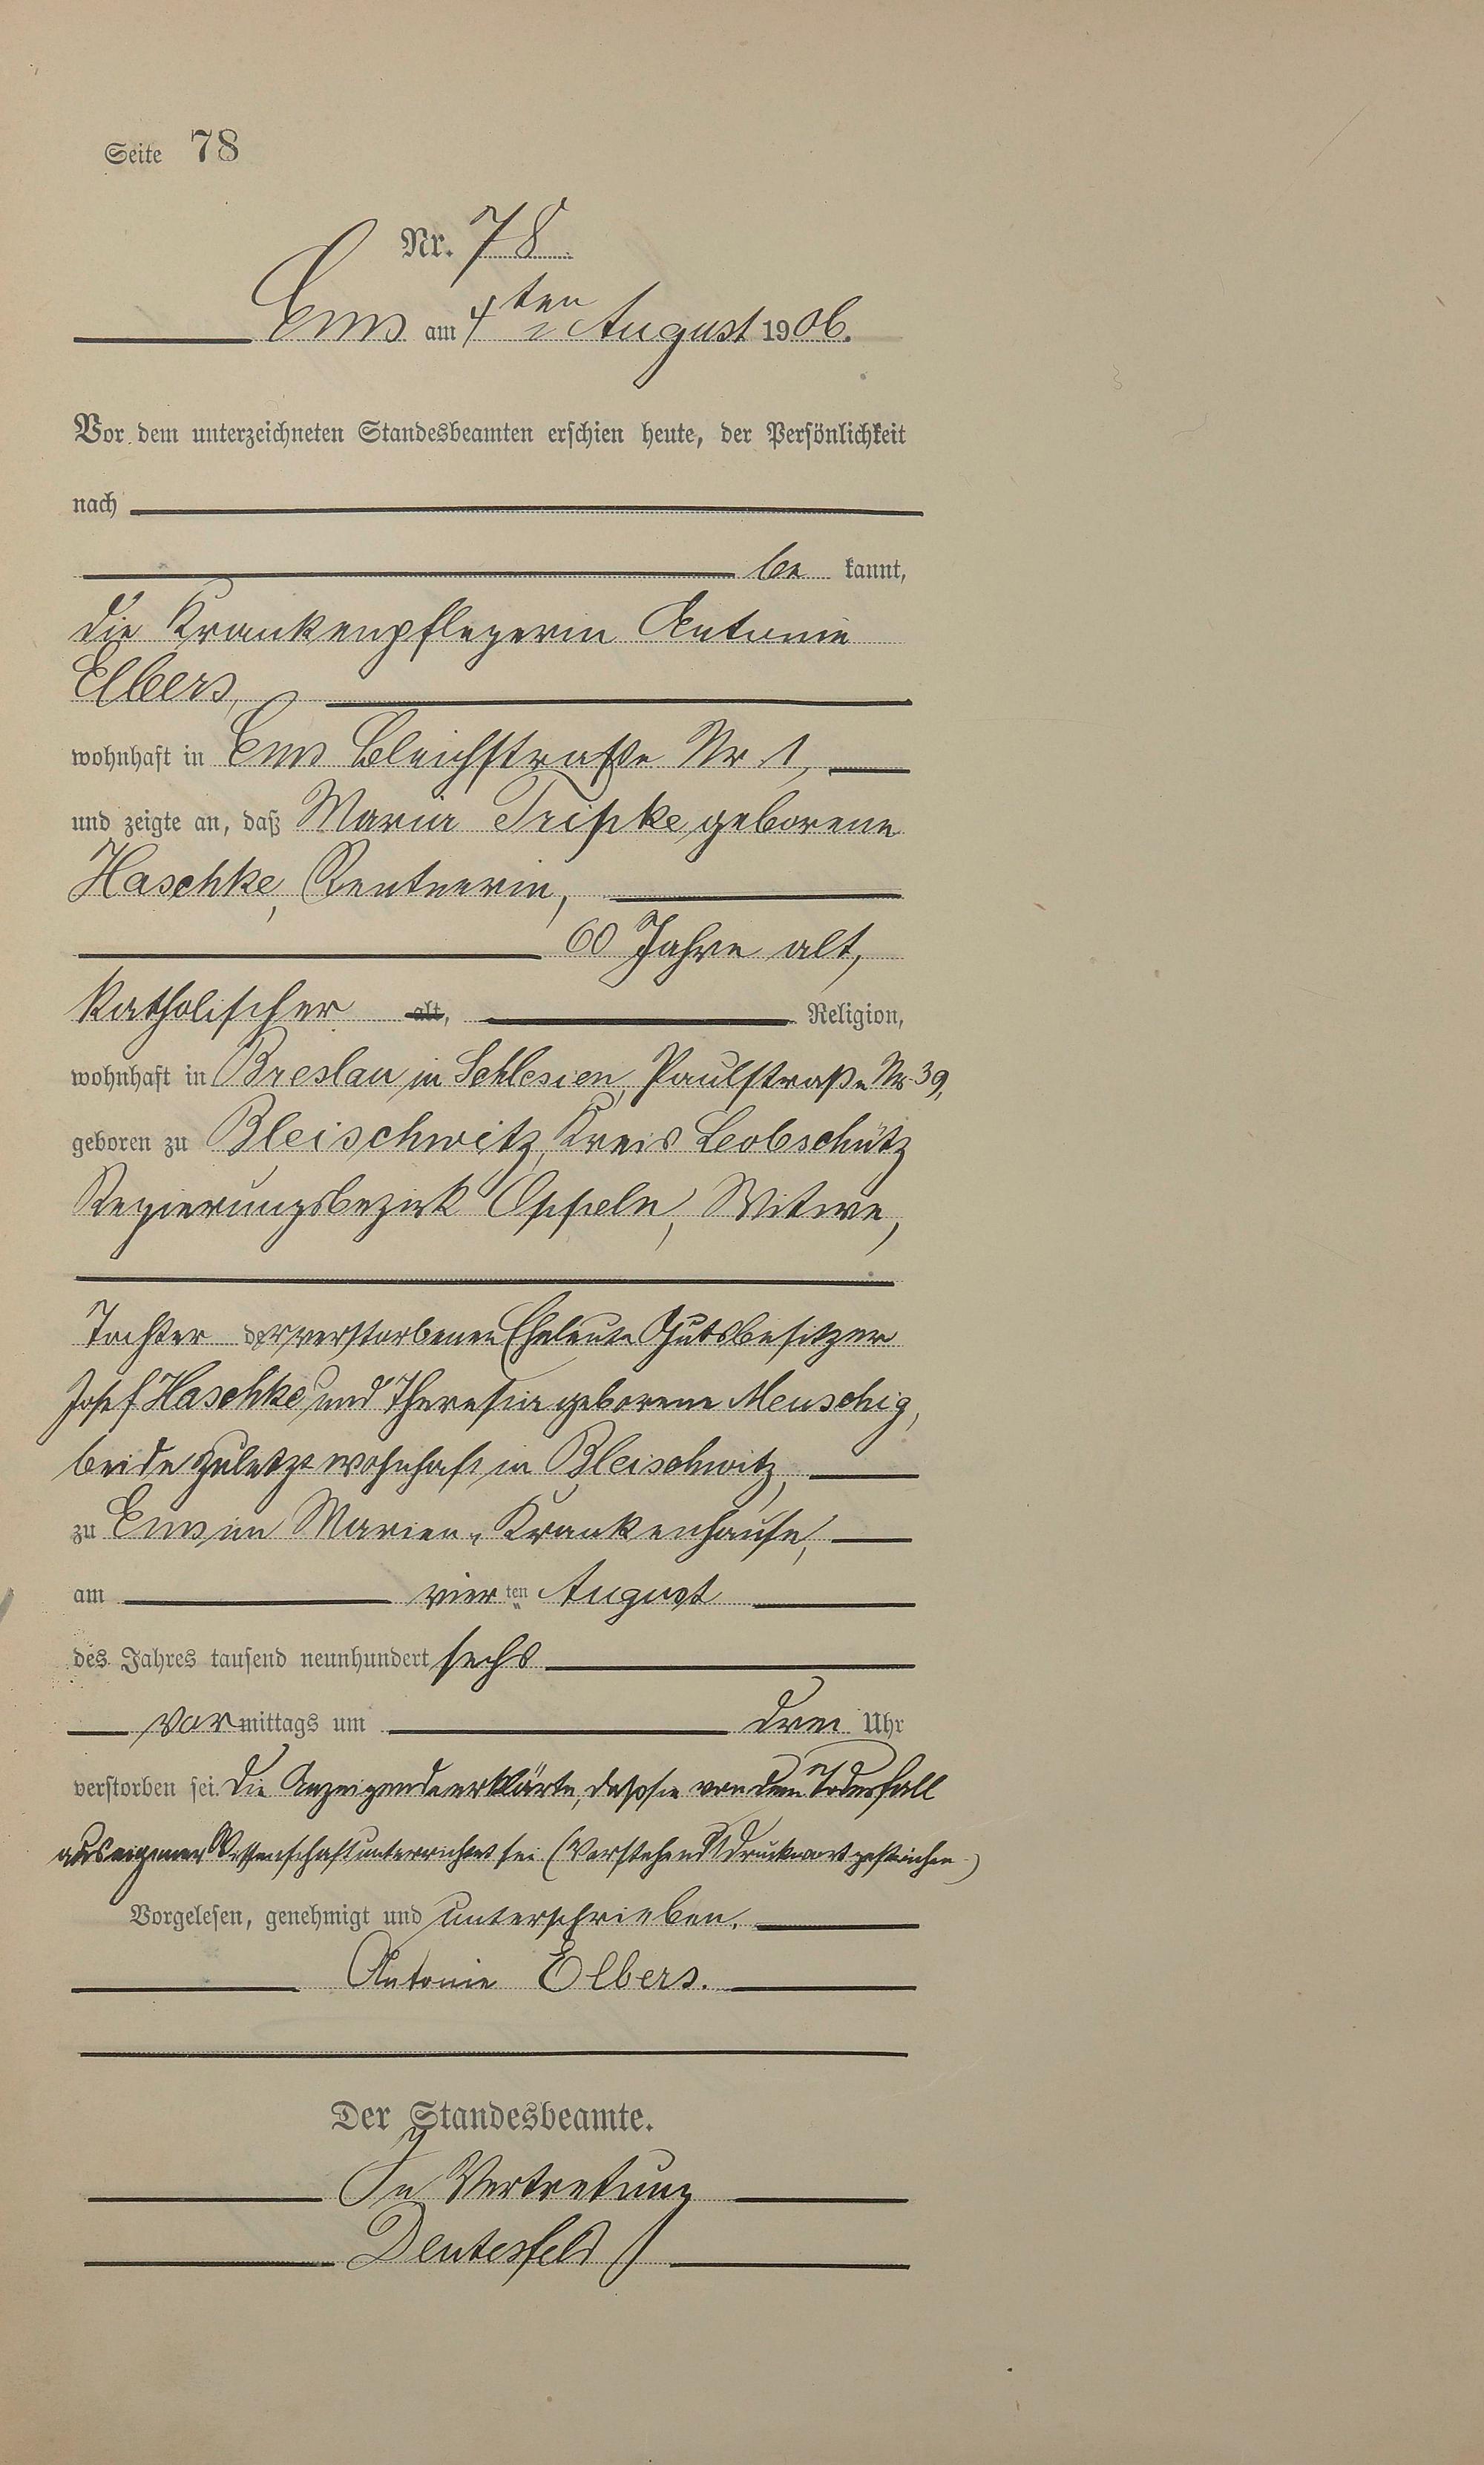 Seite 78
Nr. 78
Ems am 4ten August 1906.
Vor dem unterzeichneten Standesbeamten erschien heute, der Persönlichkeit
nach
be kannt,
die Krankenpflegerin Antonie
Elbers,
wohnhaft in Ems Bleichstraße Nr 1,
und zeigte an, daß Maria Tripke geborene
Haschke, Rentnerin,
60 Jahre alt,
katholischer alt, Religion,
wohnhaft in Breslau in Schlesien, Paulstraße Nr 39,
geboren zu Bleischwitz, Kreis Leobschütz
Regierungsbezirk Oppeln, Witwe,
Tochter der verstorbenen Eheleute Gutsbesitzer
Josef Haschke und Theresia geborene Menschig,
beide zuletzt wohnhaft in Bleischwitz,
zu Ems im Marien-Krankenhause,
am vierten August
des Jahres tausend neunhundert sechs
vormittags um drei Uhr
verstorben sei. Die Anzeigende erklärte, daß sie von dem Todesfall
aus eigener Wissenschaft unterrichtet sei (Vorstehend 1 Druckwort gestrichen.)
Vorgelesen, genehmigt und unterschrieben.
Antonie Elbers.
Der Standesbeamte.
In Vertretung